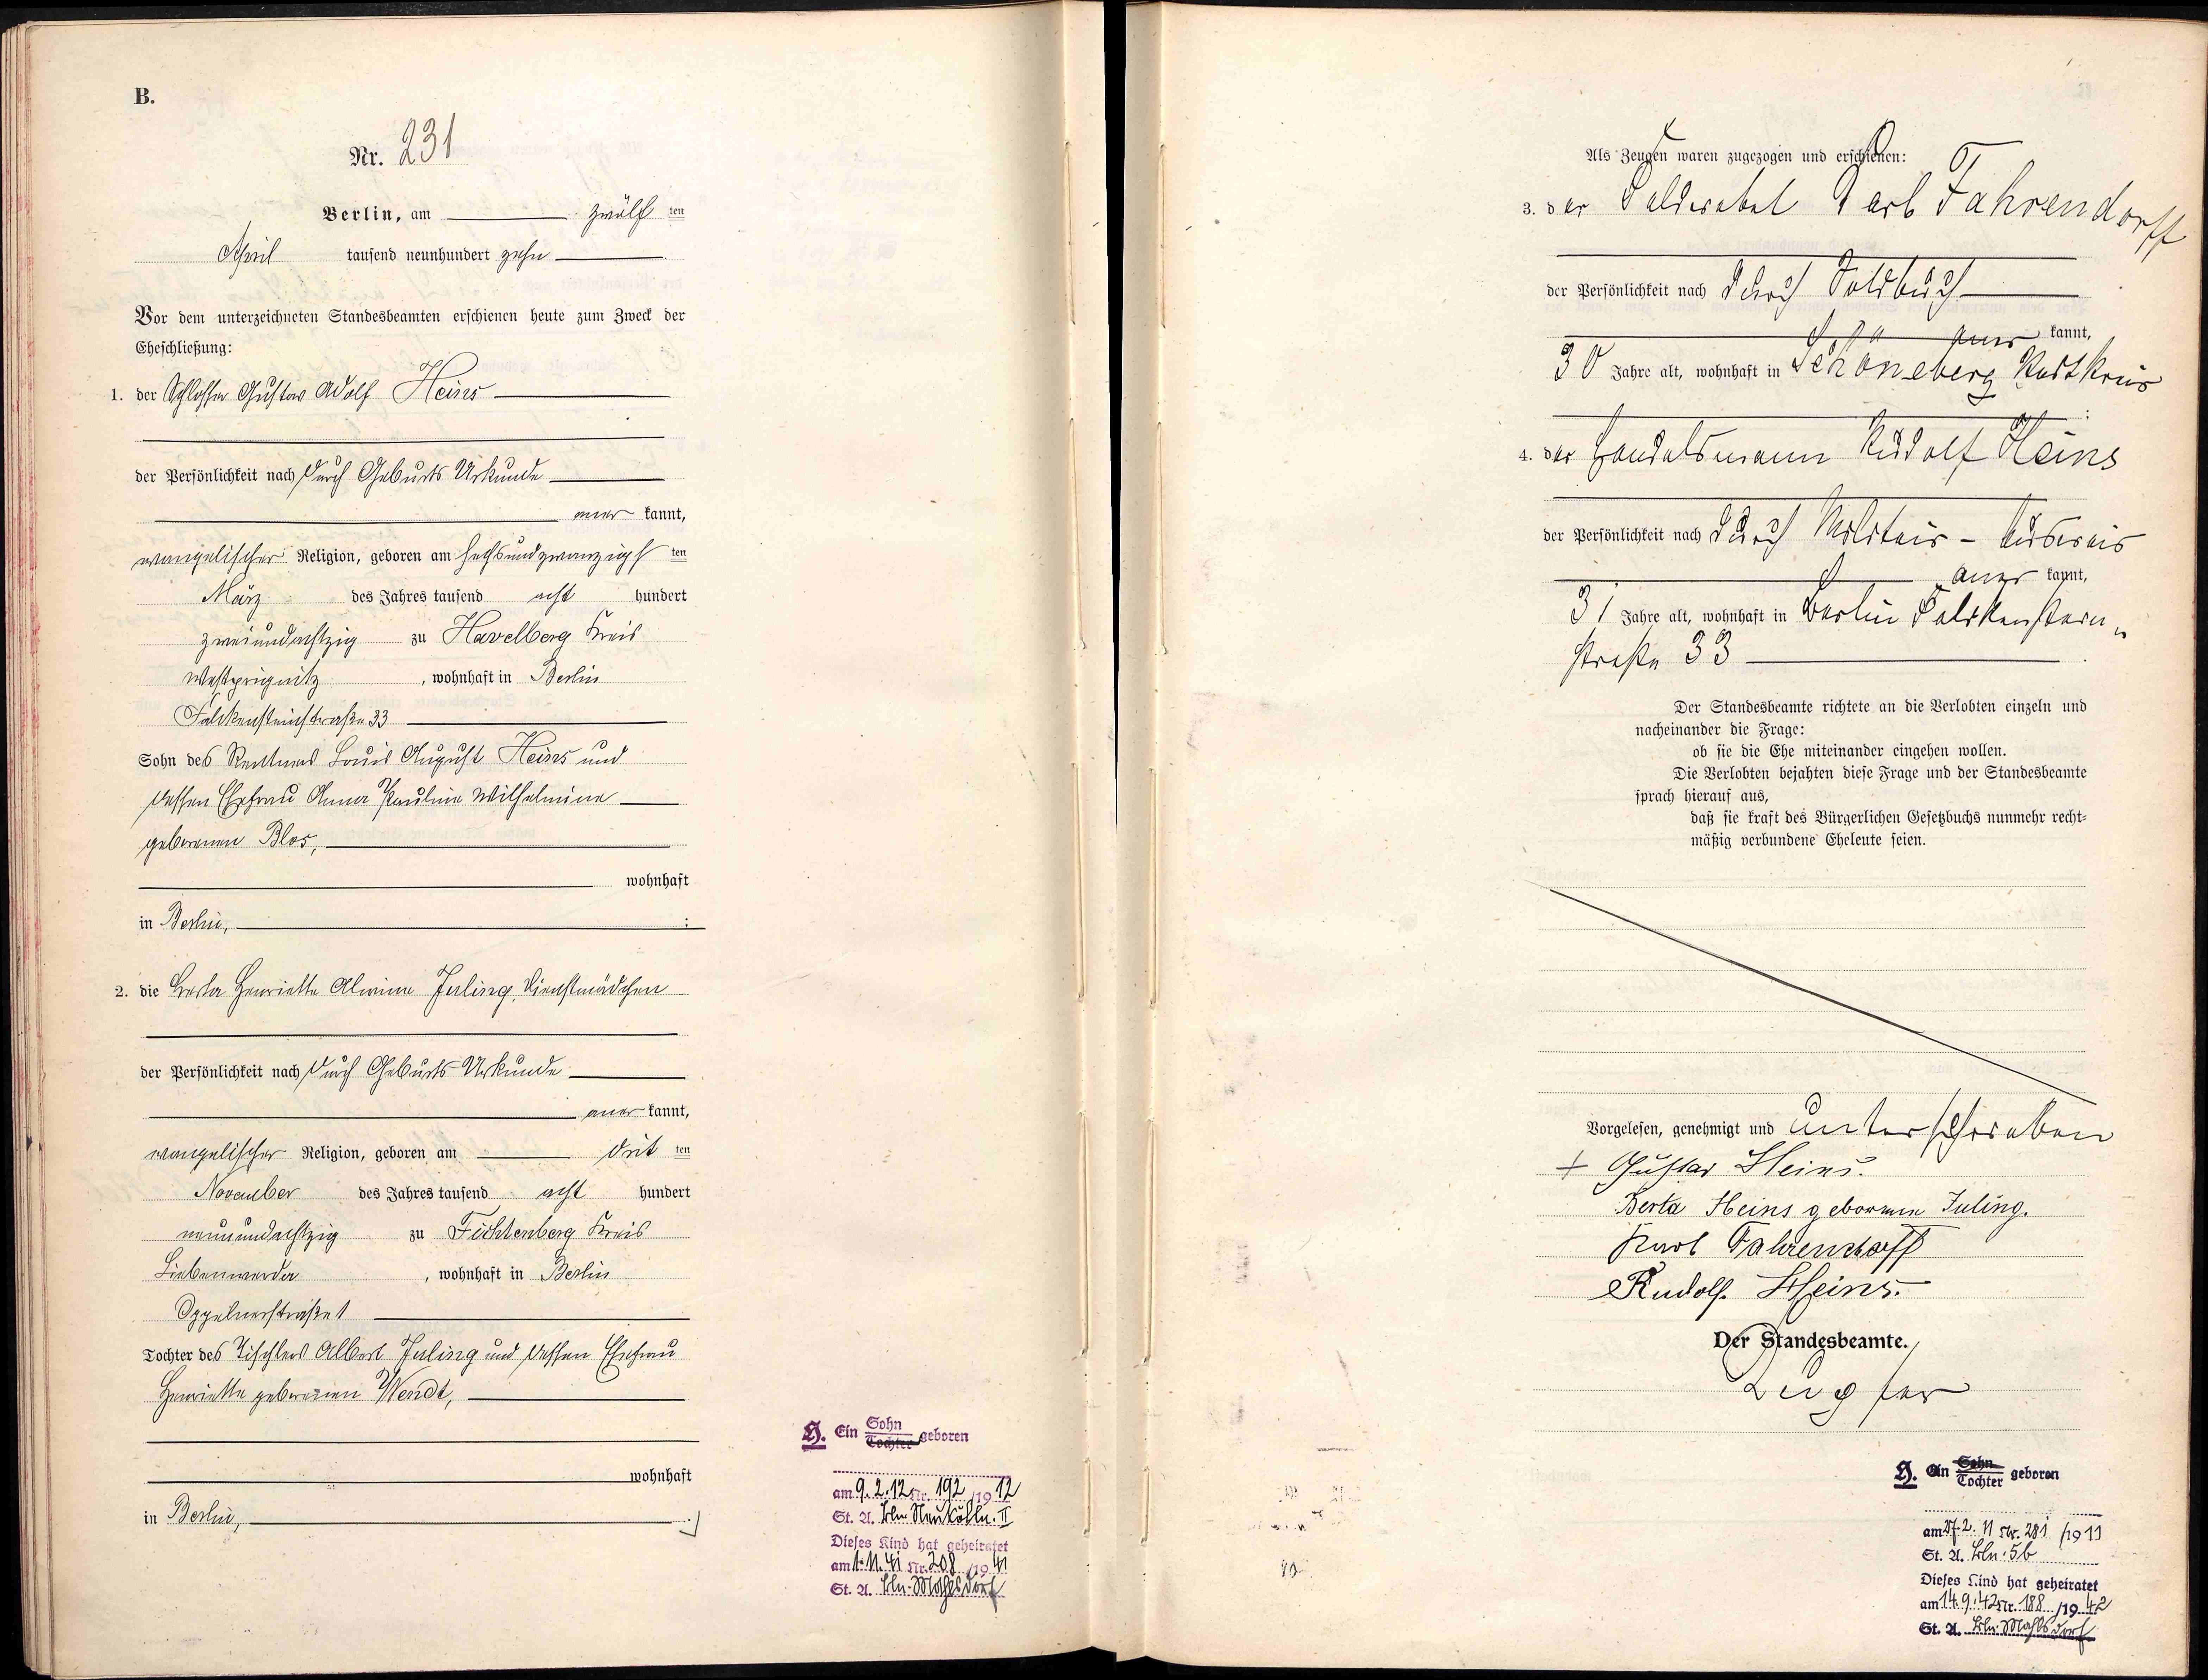 B.
Nr. 231
Berlin, am zwölf ten
April tausend neunhundert zehn
Vor dem unterzeichneten Standesbeamten erschienen heute zum Zweck der
Eheschließung:
1. der Schlosser Gustav Adolf Heins
der Persönlichkeit nach durch Geburts Urkunde
aner kannt,
evangelischer Religion, geboren am sechsundzwanzigst ten
März des Jahres tausend acht hundert
zweiundachtzig zu Havelberg Kreis
Westprignitz, wohnhaft in Berlin
Falckensteinstraße 33
Sohn des Rentners Louis August Heins und
dessen Ehefrau Anna Pauline Wilhelmine
geborenen Blos,
wohnhaft
in Berlin, :
2. die Berta Henriette Alwine Juling, Dienstmädchen
der Persönlichkeit nach durch Geburts Urkunde
aner kannt,
evangelischer Religion, geboren am drit ten
November des Jahres tausend acht hundert
neunundachtzig zu Fichtenberg Kreis
Liebenwerda, wohnhaft in Berlin
Oppelnerstraße 1
Tochter des Tischlers Albert Juling und dessen Ehefrau
Henriette geborenen Wendt,
wohnhaft
in Berlin,
H. Ein Sohn
Tochter geboren
am 9.2.12 Nr. 192 /19 12
St. A. Bln. Neukölln. II
Dieses Kind hat geheiratet
am 1.11.41 Nr. 208 /19 41
St. A. Bln. Mahlsdorf
Als Zeugen waren zugezogen und erschienen:
3. der Feldwebel Karl Fahrendorff
der Persönlichkeit nach durch Soldbuch
aner kannt,
30 Jahre alt, wohnhaft in Schöneberg
4. der Handelsmann Rudolf Heins
der Persönlichkeit nach durch Militair-Ausweis
aner kannt,
31 Jahre alt, wohnhaft in Berlin Falckenstein-
straße 33
Der Standesbeamte richtete an die Verlobten einzeln und
nacheinander die Frage:
ob sie die Ehe miteinander eingehen wollen.
Die Verlobten bejahten diese Frage und der Standesbeamte
sprach hierauf aus,
daß sie kraft des Bürgerlichen Gesetzbuchs nunmehr recht-
mäßig verbundene Eheleute seien.
Vorgelesen, genehmigt und unterschrieben
+ Gustav Heins.
Berta Heins geborene Juling.
Karl Fahrendorff
Rudolf Heins.
Der Standesbeamte.
H. Ein Sohn
Tochter geboren
am 27.2.11 Nr. 281 /19 11
St. A. Bln. 5b
Dieses Kind hat geheiratet
am 14.9.42 Nr. 188 /19 42
St. A. Bln. Mahlsdorf